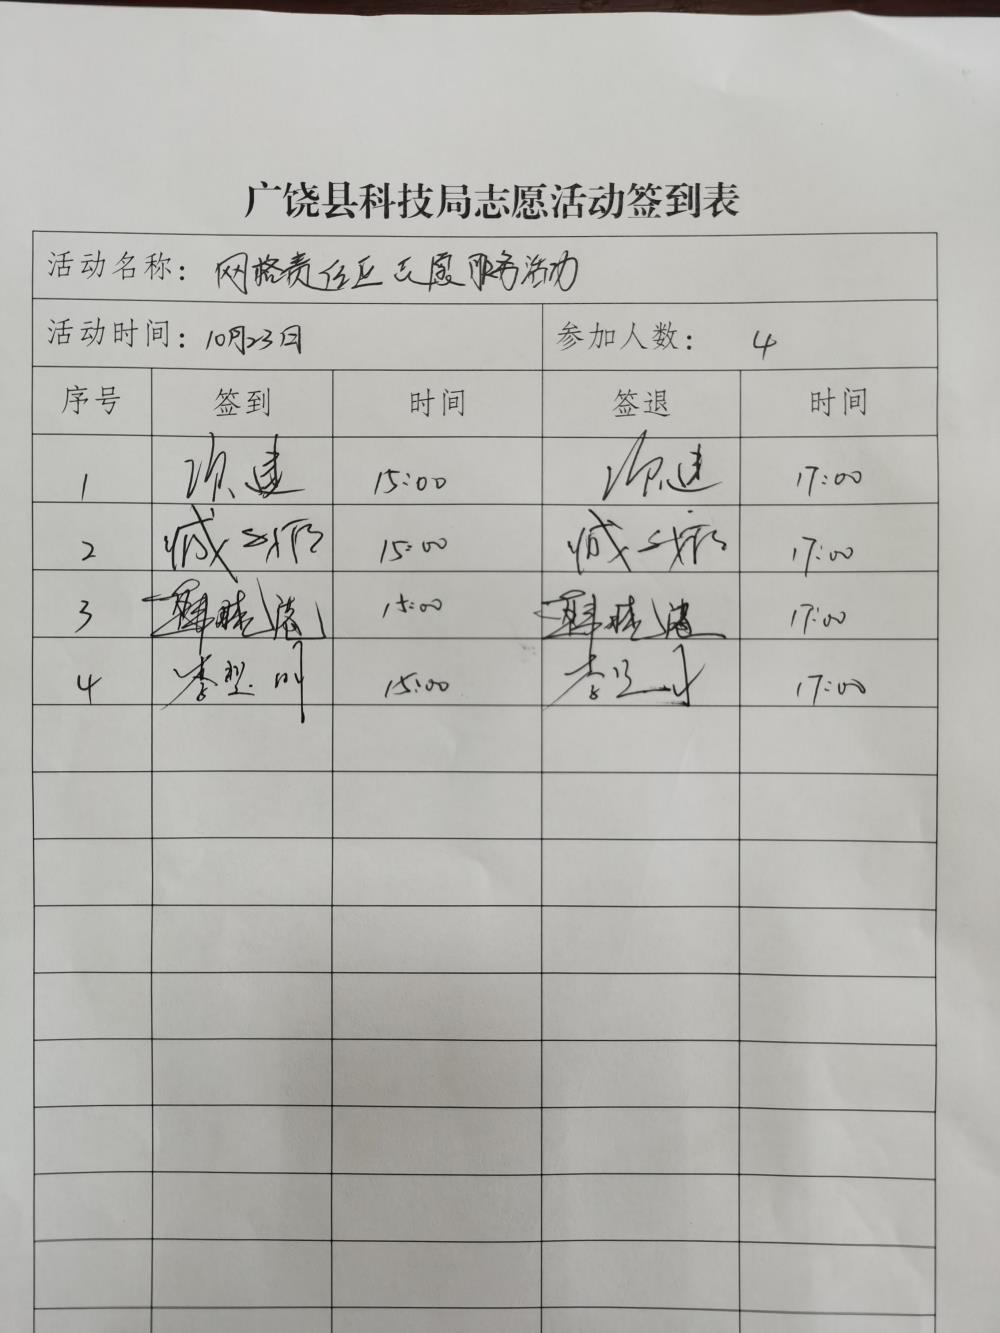 广饶县科技局志愿活动签到表
活动名称：网格责任区志愿服务活动
活动时间：10月23日 参加人数：4
序号 签到 时间 签退 时间
1 项建 15:00 项建 17:00
2 15:00 17:00
3 韩晓 15:00 韩晓 17:00
4 李翌 15:00 李 17:00